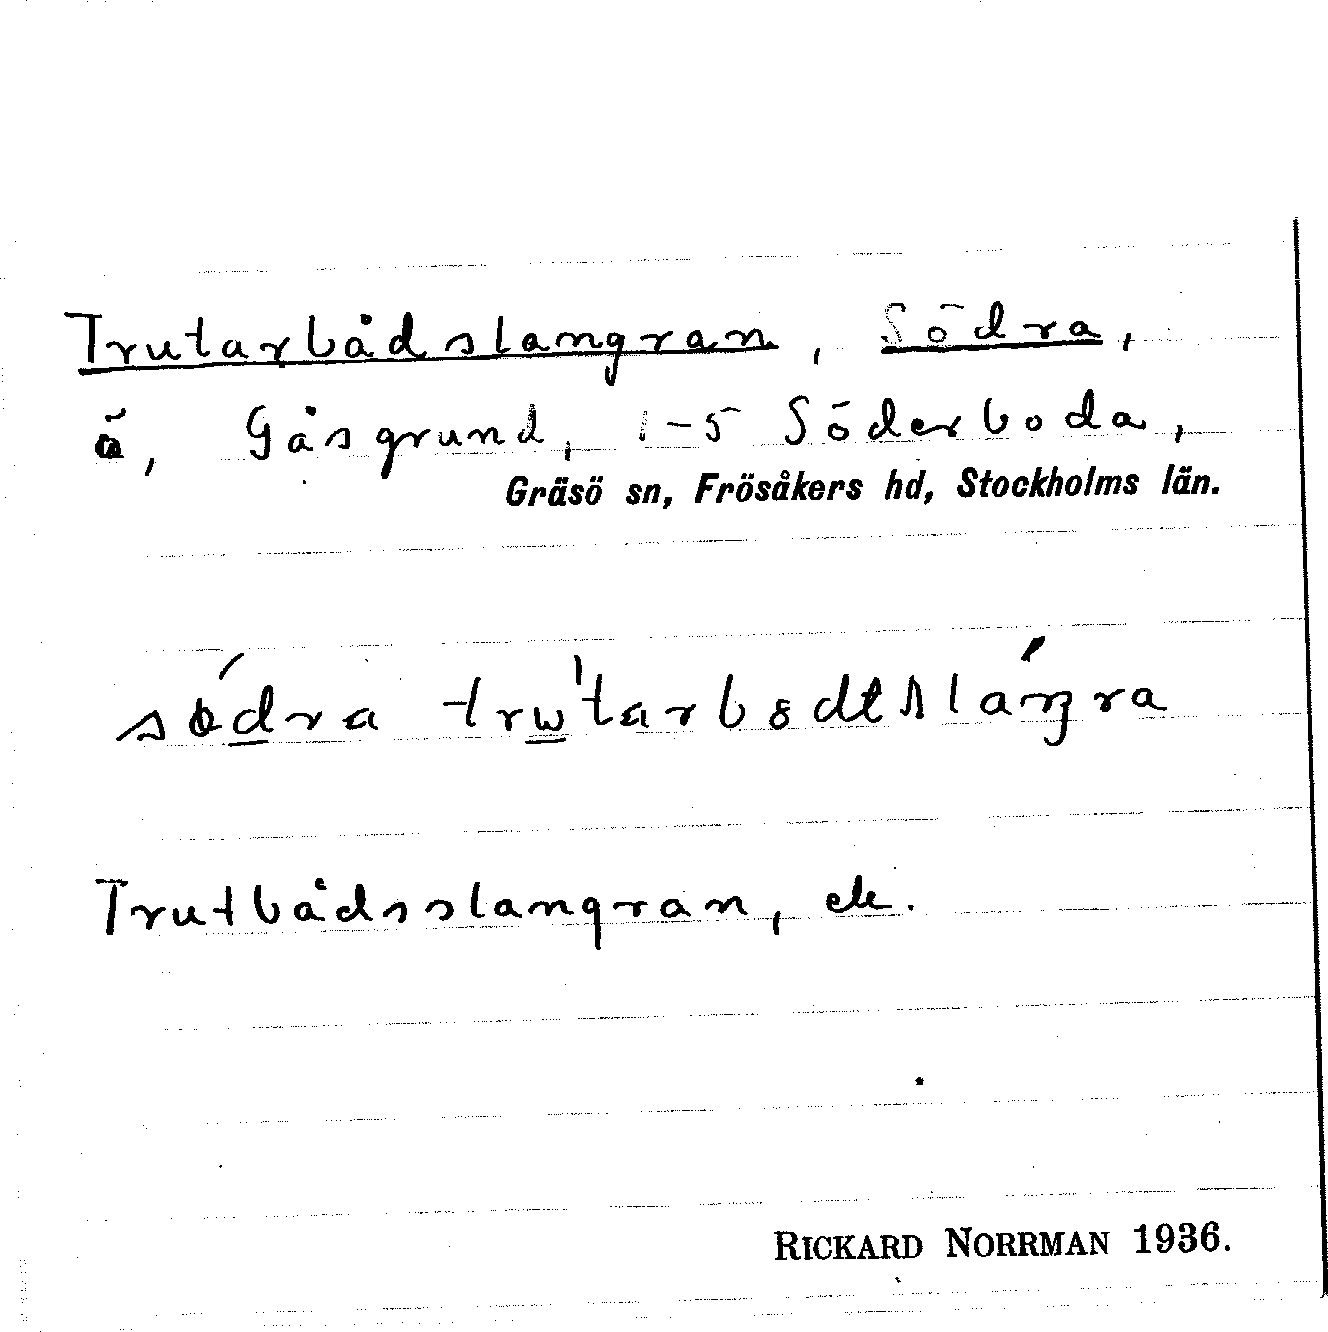 Trutarbådslangran, Södra,
ä, Gåsgrund, 1-5 Söderboda,
Gräsö sn, Frösåkers hd, Stockholms län.
södra
Trutbådsslangran, ek.
RICKARD NORRMAN 1936.